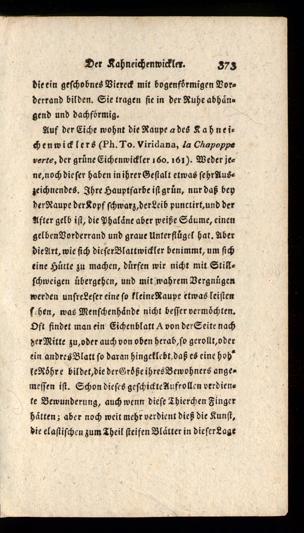 Der Kahneichenwickler. 373
die ein geschobnes Viereck mit bogenförmigen Vor-
derrand bilden. Sie tragen sie in der Ruhe abhän-
gend und dachförmig.
Auf der Eiche wohnt die Raupe a des Kahnei-
chenwicklers (Ph. To. Viridana, la Chapoppe
verte, der grüne Eichenwickler 160. 161). Weder je-
ne, noch dieser haben in ihrer Gestalt etwas sehr Aus-
zeichnendes. Ihre Hauptfarbe ist grün, nur daß bey
der Raupe der Kopf schwarz, der Leib punctirt, und der
After gelb ist, die Phaläne aber weiße Säume, einen
gelben Vorderrand und graue Unterflügel hat. Aber
die Art, wie sich dieser Blattwickler benimmt, um sich
eine Hütte zu machen, dürfen wir nicht mit Still-
schweigen übergehen, und mit wahrem Vergnügen
werden unsre Leser eine so kleine Raupe etwas leisten
sehen, was Menschenhände nicht besser vermöchten.
Oft findet man ein Eichenblatt A von der Seite nach
der Mitte zu, oder auch von oben herab, so gerollt, oder
ein andres Blatt so daran hingeklebt, daß es eine hoh-
le Röhre bildet, die der Größe ihres Bewohners ange-
messen ist. Schon dieses geschickte Aufrollen verdien-
te Bewunderung, auch wenn diese Thierchen Finger
hätten; aber noch weit mehr verdient dieß die Kunst,
die elastischen zum Theil steifen Blätter in dieser Lage